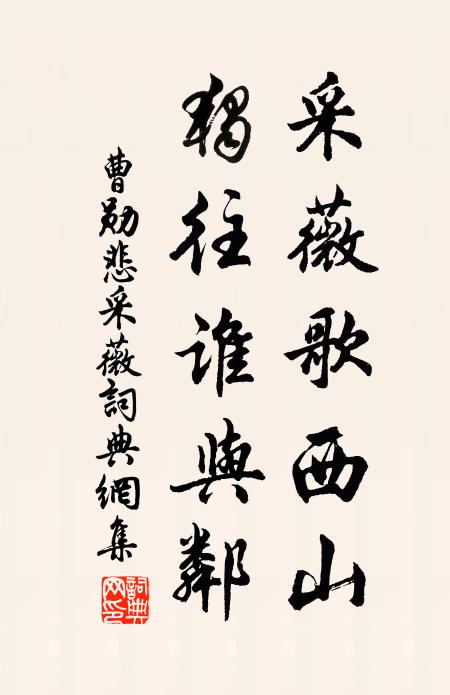 采薇歌西山
獨往誰與鄰
曹勛悲采薇詞典網集
詞典網印